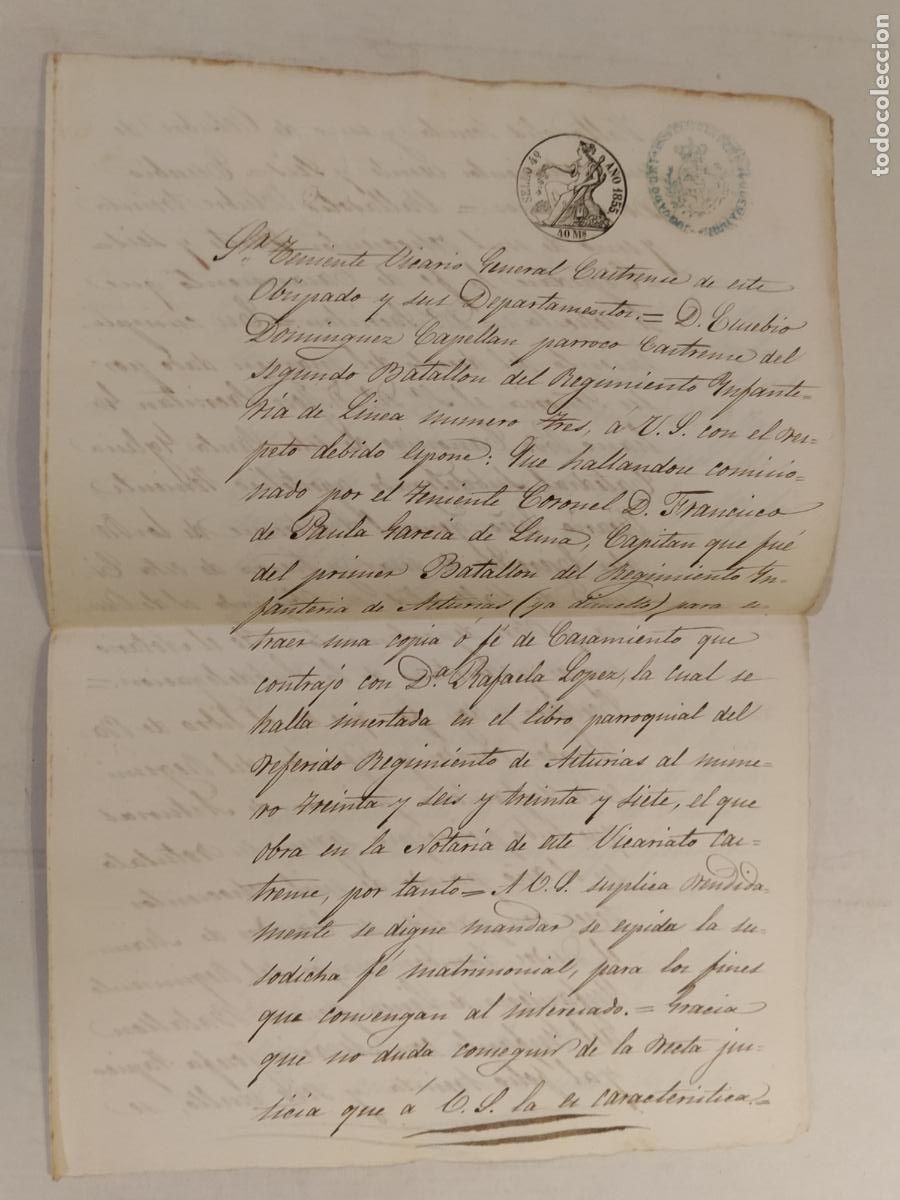 todocoleccion
SELLO 4º AÑO 1855
40 Ms
Sr. Teniente Vicario General Castrense de este
Obispado y sus Departamentos.= D. Eusebio
Dominguez Capellan parroco Castrense del
segundo Batallon del Regimiento Infante-
ria de Linea numero tres, á V. S. con el res-
peto debido espone: Que hallandose comicio-
nado por el Teniente Coronel D. Francisco
de Paula Garcia de Luna, Capitan que fué
del primer Batallon del Regimiento In-
fanteria de Asturias (ya disuelto) para es-
traer una copia ó fé de Casamiento que
contrajo con D.ª Rafaela Lopez, la cual se
halla insertada en el libro parroquial del
referido Regimiento de Asturias al nume-
ro treinta y seis y treinta y siete, el que
obra en la Notaría de este Vicariato Cas-
trense, por tanto= A V. S. suplica rendida-
mente se digne mandar se espida la su-
sodicha fé matrimonial, para los fines
que convengan al interesado.= Gracia
que no duda conseguir de la recta jus-
ticia que á V. S. la es caracteristica.=